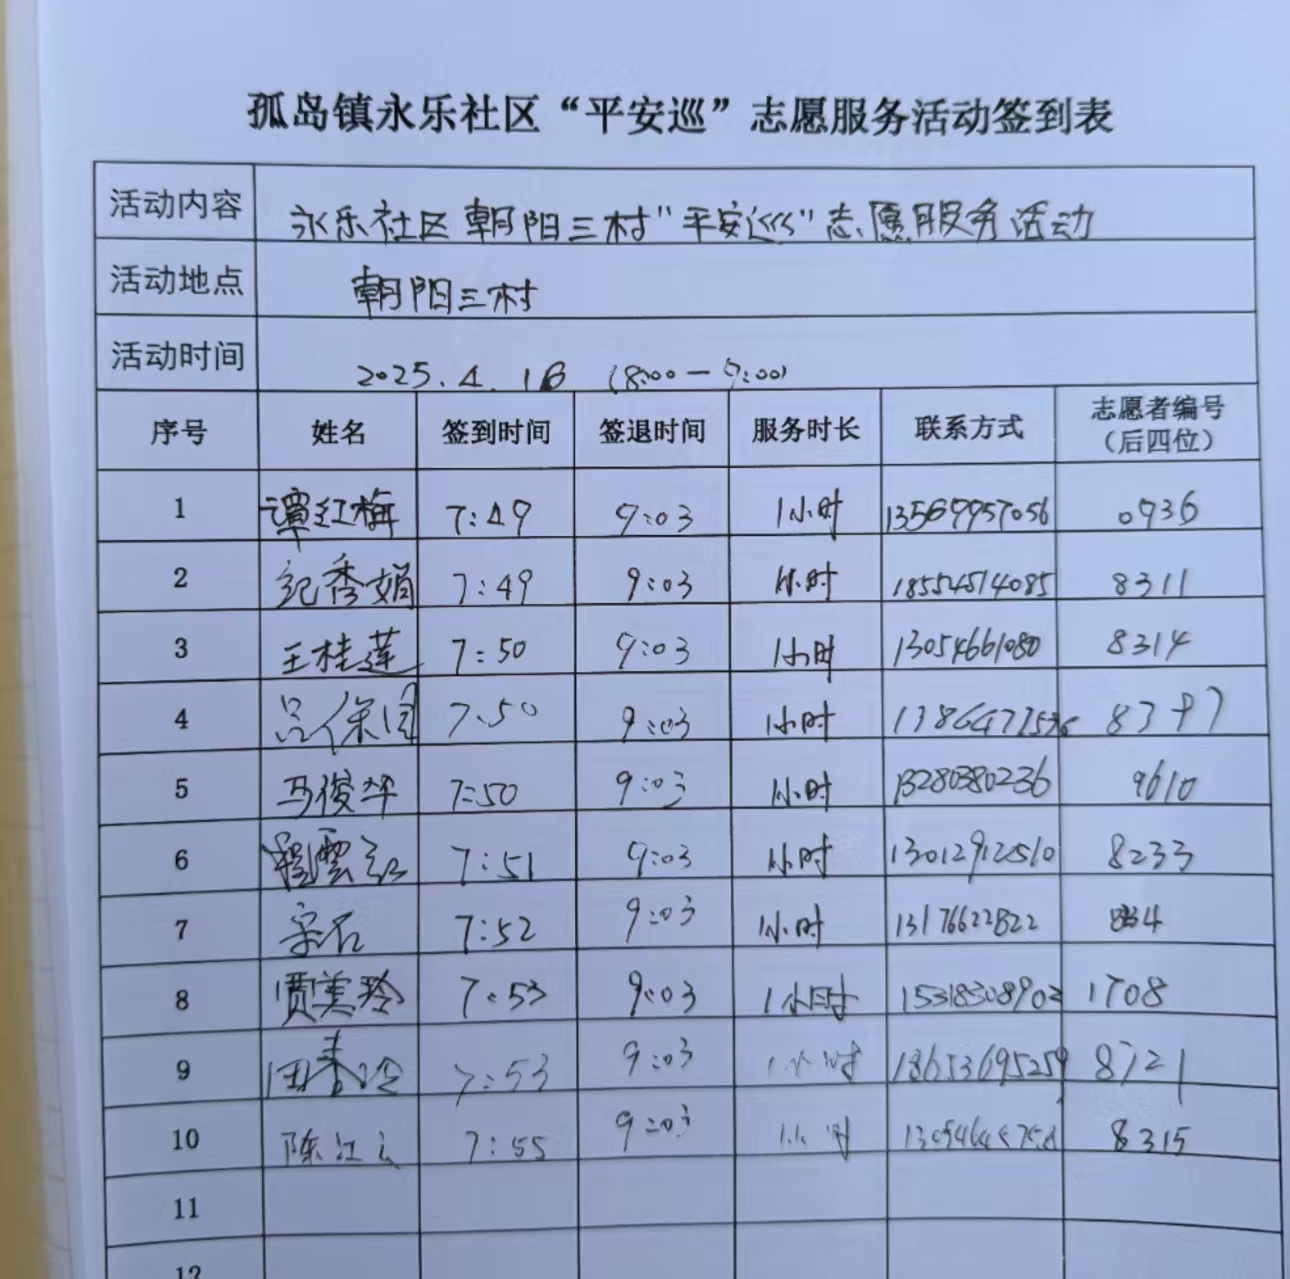 孤岛镇永乐社区“平安巡”志愿服务活动签到表
活动内容 永乐社区朝阳三村"平安巡"志愿服务活动
活动地点 朝阳三村
活动时间 2025.4.1日 (8:00-9:00)
序号 姓名 签到时间 签退时间 服务时长 联系方式 志愿者编号（后四位）
1 谭红梅 7:49 9:03 1小时 0936
2 纪秀娟 7:49 9:03 1小时 18554514085 8311
3 王桂莲 7:50 9:03 1小时 13054661080 8314
4 吕保国 7:50 9:03 1小时
5 马俊华 7:50 9:03 1小时 13280380236 9610
6 程雲红 7:51 9:03 1小时 13012912510 8233
7 宗石 7:52 9:03 1小时 13176622822
8 贾美玲 7:53 9:03 1小时 15318308902 1708
9 7:53 9:03 1小时 18653695259 8721
10 陈江 7:55 9:03 1小时 8315
11
12